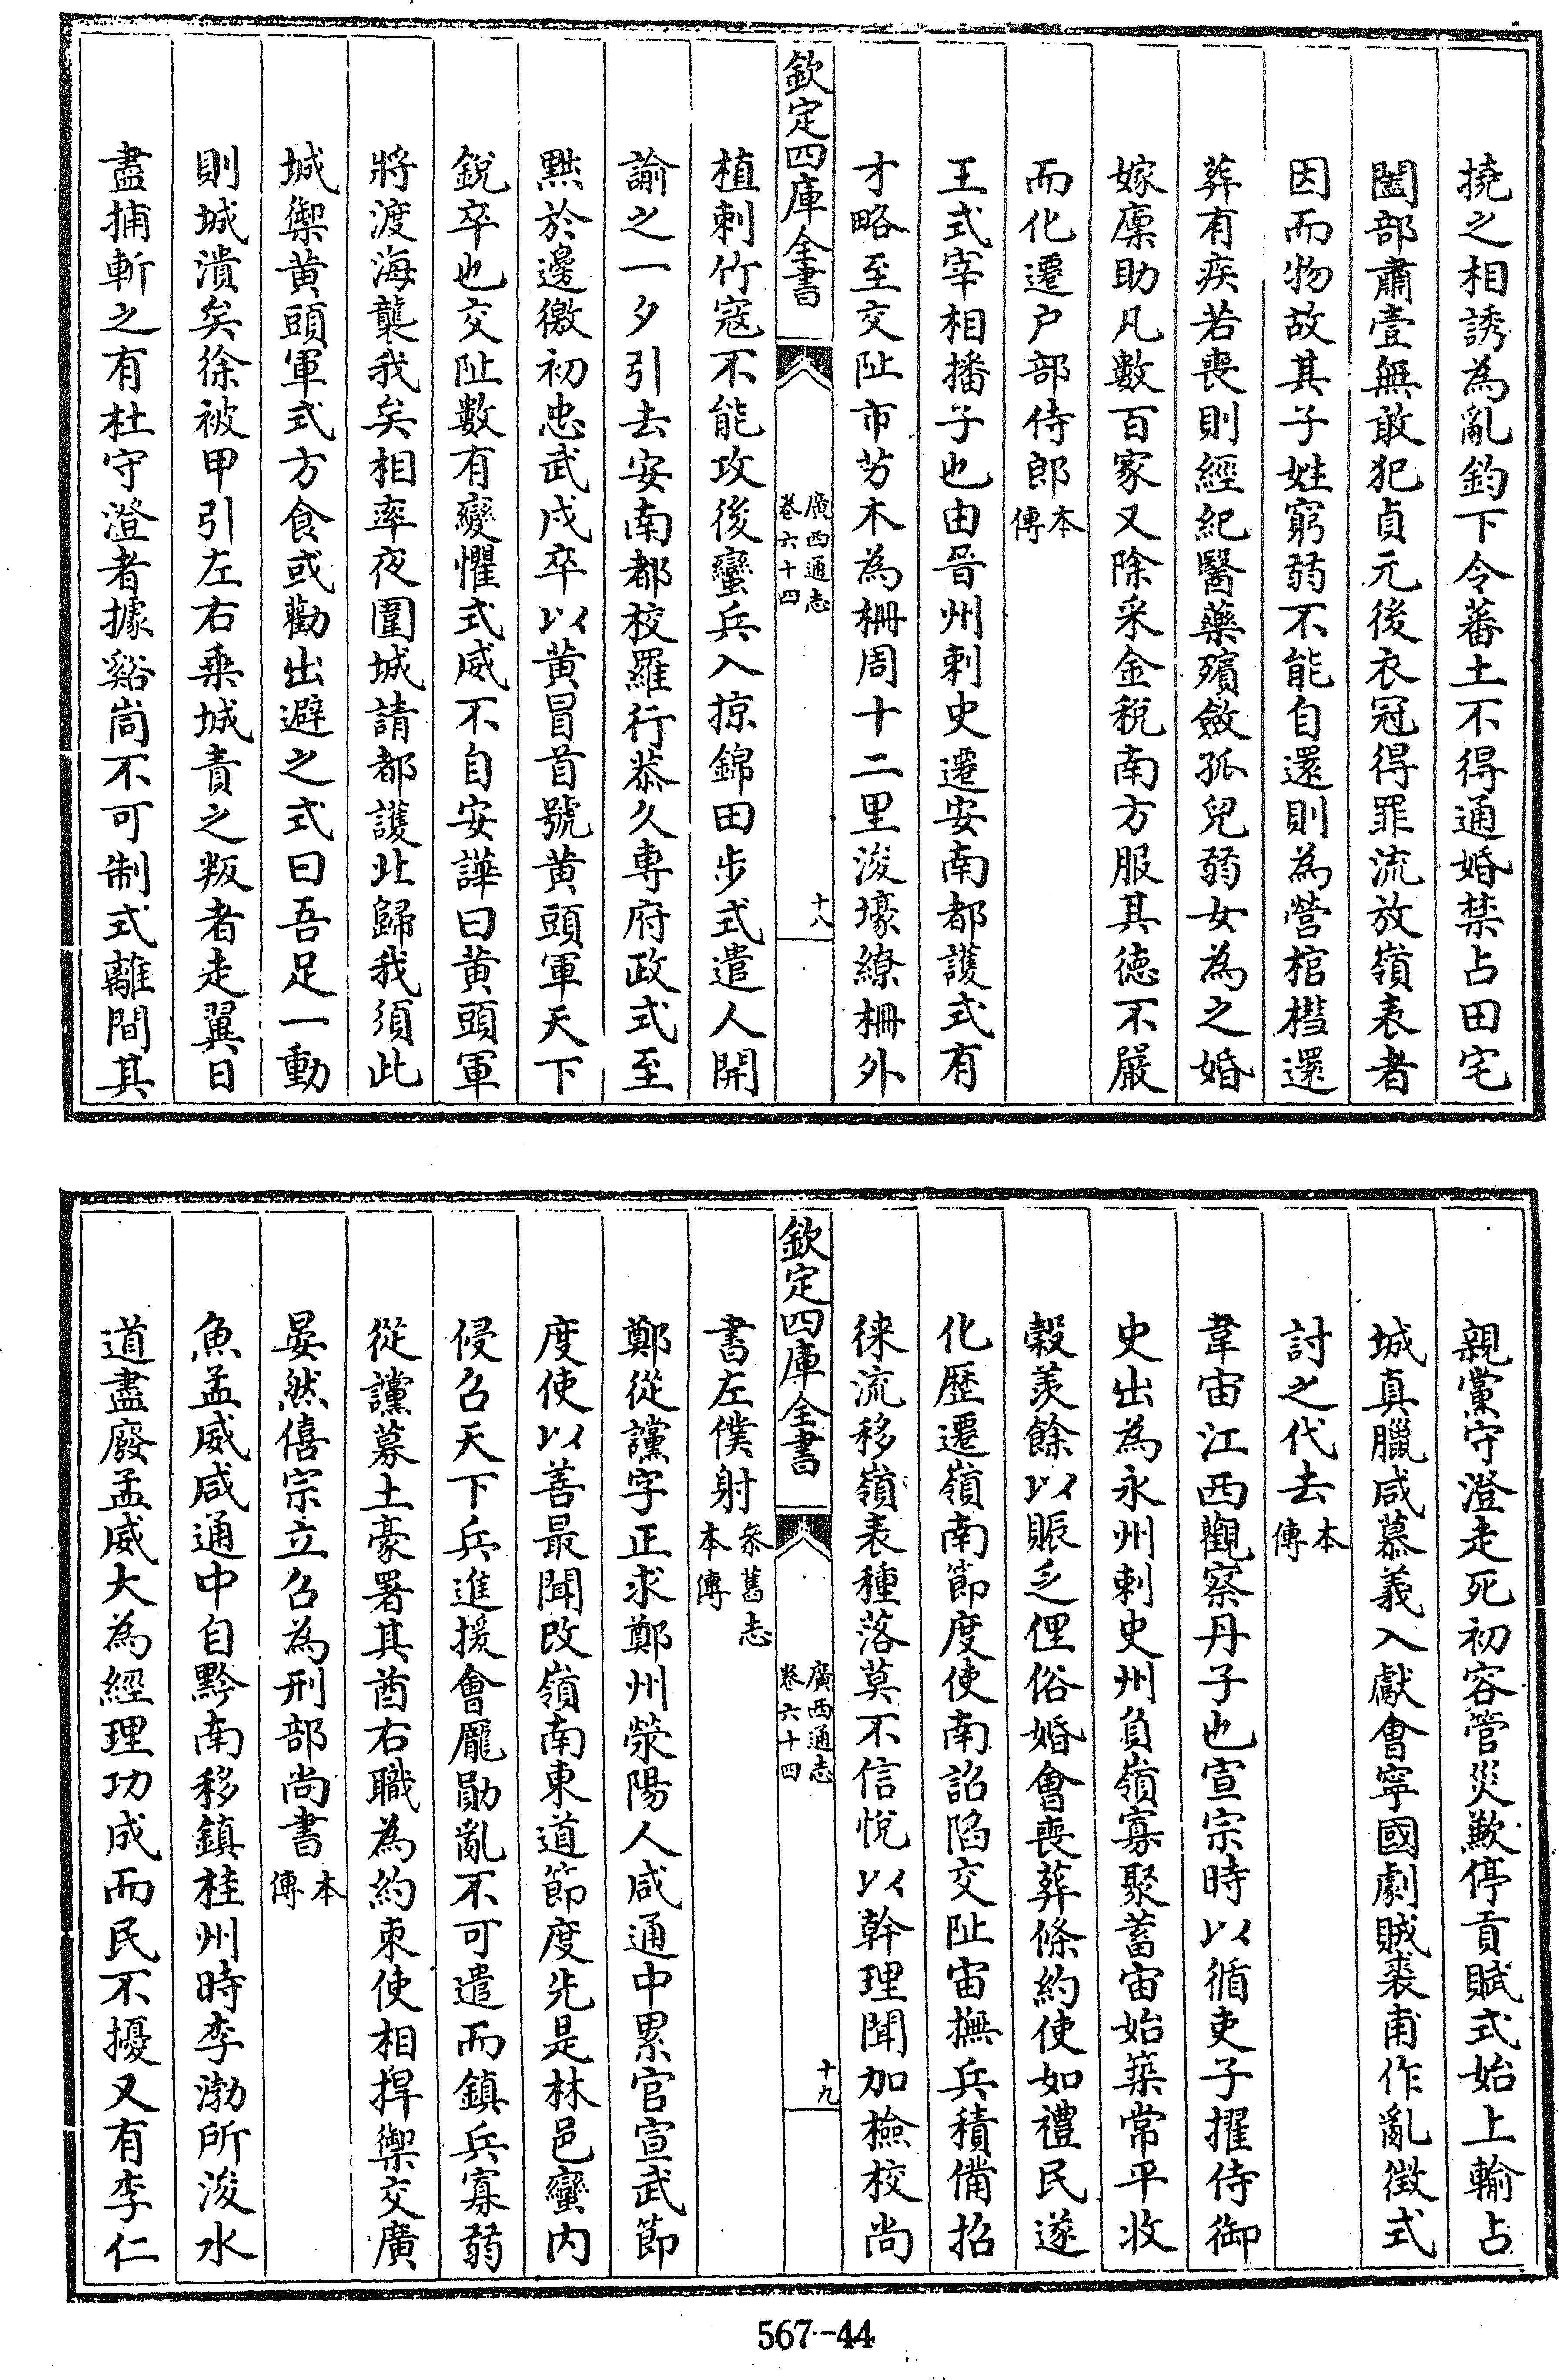 撓之相誘為亂鈞下令蕃土不得通婚禁占田宅
闔部肅壹無敢犯貞元後衣冠得罪流放嶺表者
因而物故其子姓窮弱不能自還則為營棺櫘還
葬有疾若喪則經紀醫藥殯斂孤兒弱女為之婚
嫁廩助凡數百家又除采金稅南方服其徳不嚴
而化遷户部侍郎本傳
王式宰相播子也由晉州刺史遷安南都護式有
才略至交阯市芀木為柵周十二里浚壕繚柵外
欽定四庫全書
廣西通志
卷六十四
十八
植刺竹寇不能攻後蠻兵入掠錦田步式遣人開
諭之一夕引去安南都校羅行恭久専府政式至
黜於邊徼初忠武戍卒以黄冒首號黄頭軍天下
銳卒也交阯數有變懼式威不自安譁曰黄頭軍
將渡海襲我矣相率夜圍城請都護北歸我須此
城禦黄頭軍式方食或勸出避之式曰吾足一動
則城潰矣徐被甲引左右乗城責之叛者走翼日
盡捕斬之有杜守澄者據谿峝不可制式離間其
親黨守澄走死初容管災歉停貢賦式始上輸占
城真臘咸慕義入獻會寧國劇賊裘甫作亂徴式
討之代去本傳
韋宙江西觀察丹子也宣宗時以循吏子擢侍御
史出為永州刺史州負嶺寡聚蓄宙始築常平收
榖羡餘以賑乏俚俗婚會喪葬條約使如禮民遂
化歴遷嶺南節度使南詔陷交阯宙撫兵積備招
徠流移嶺表種落莫不信悅以幹理聞加檢校尚
欽定四庫全書
廣西通志
卷六十四
十九
書左僕射叅舊志本傳
鄭從讜字正求鄭州滎陽人咸通中累官宣武節
度使以善最聞改嶺南東道節度先是林邑蠻内
侵召天下兵進援會龎勛亂不可遣而鎮兵寡弱
從讜募土豪署其酋右職為約束使相捍禦交廣
晏然僖宗立召為刑部尚書本傳
魚孟威咸通中自黔南移鎮桂州時李渤所浚水
道盡廢孟威大為經理功成而民不擾又有李仁
567-44